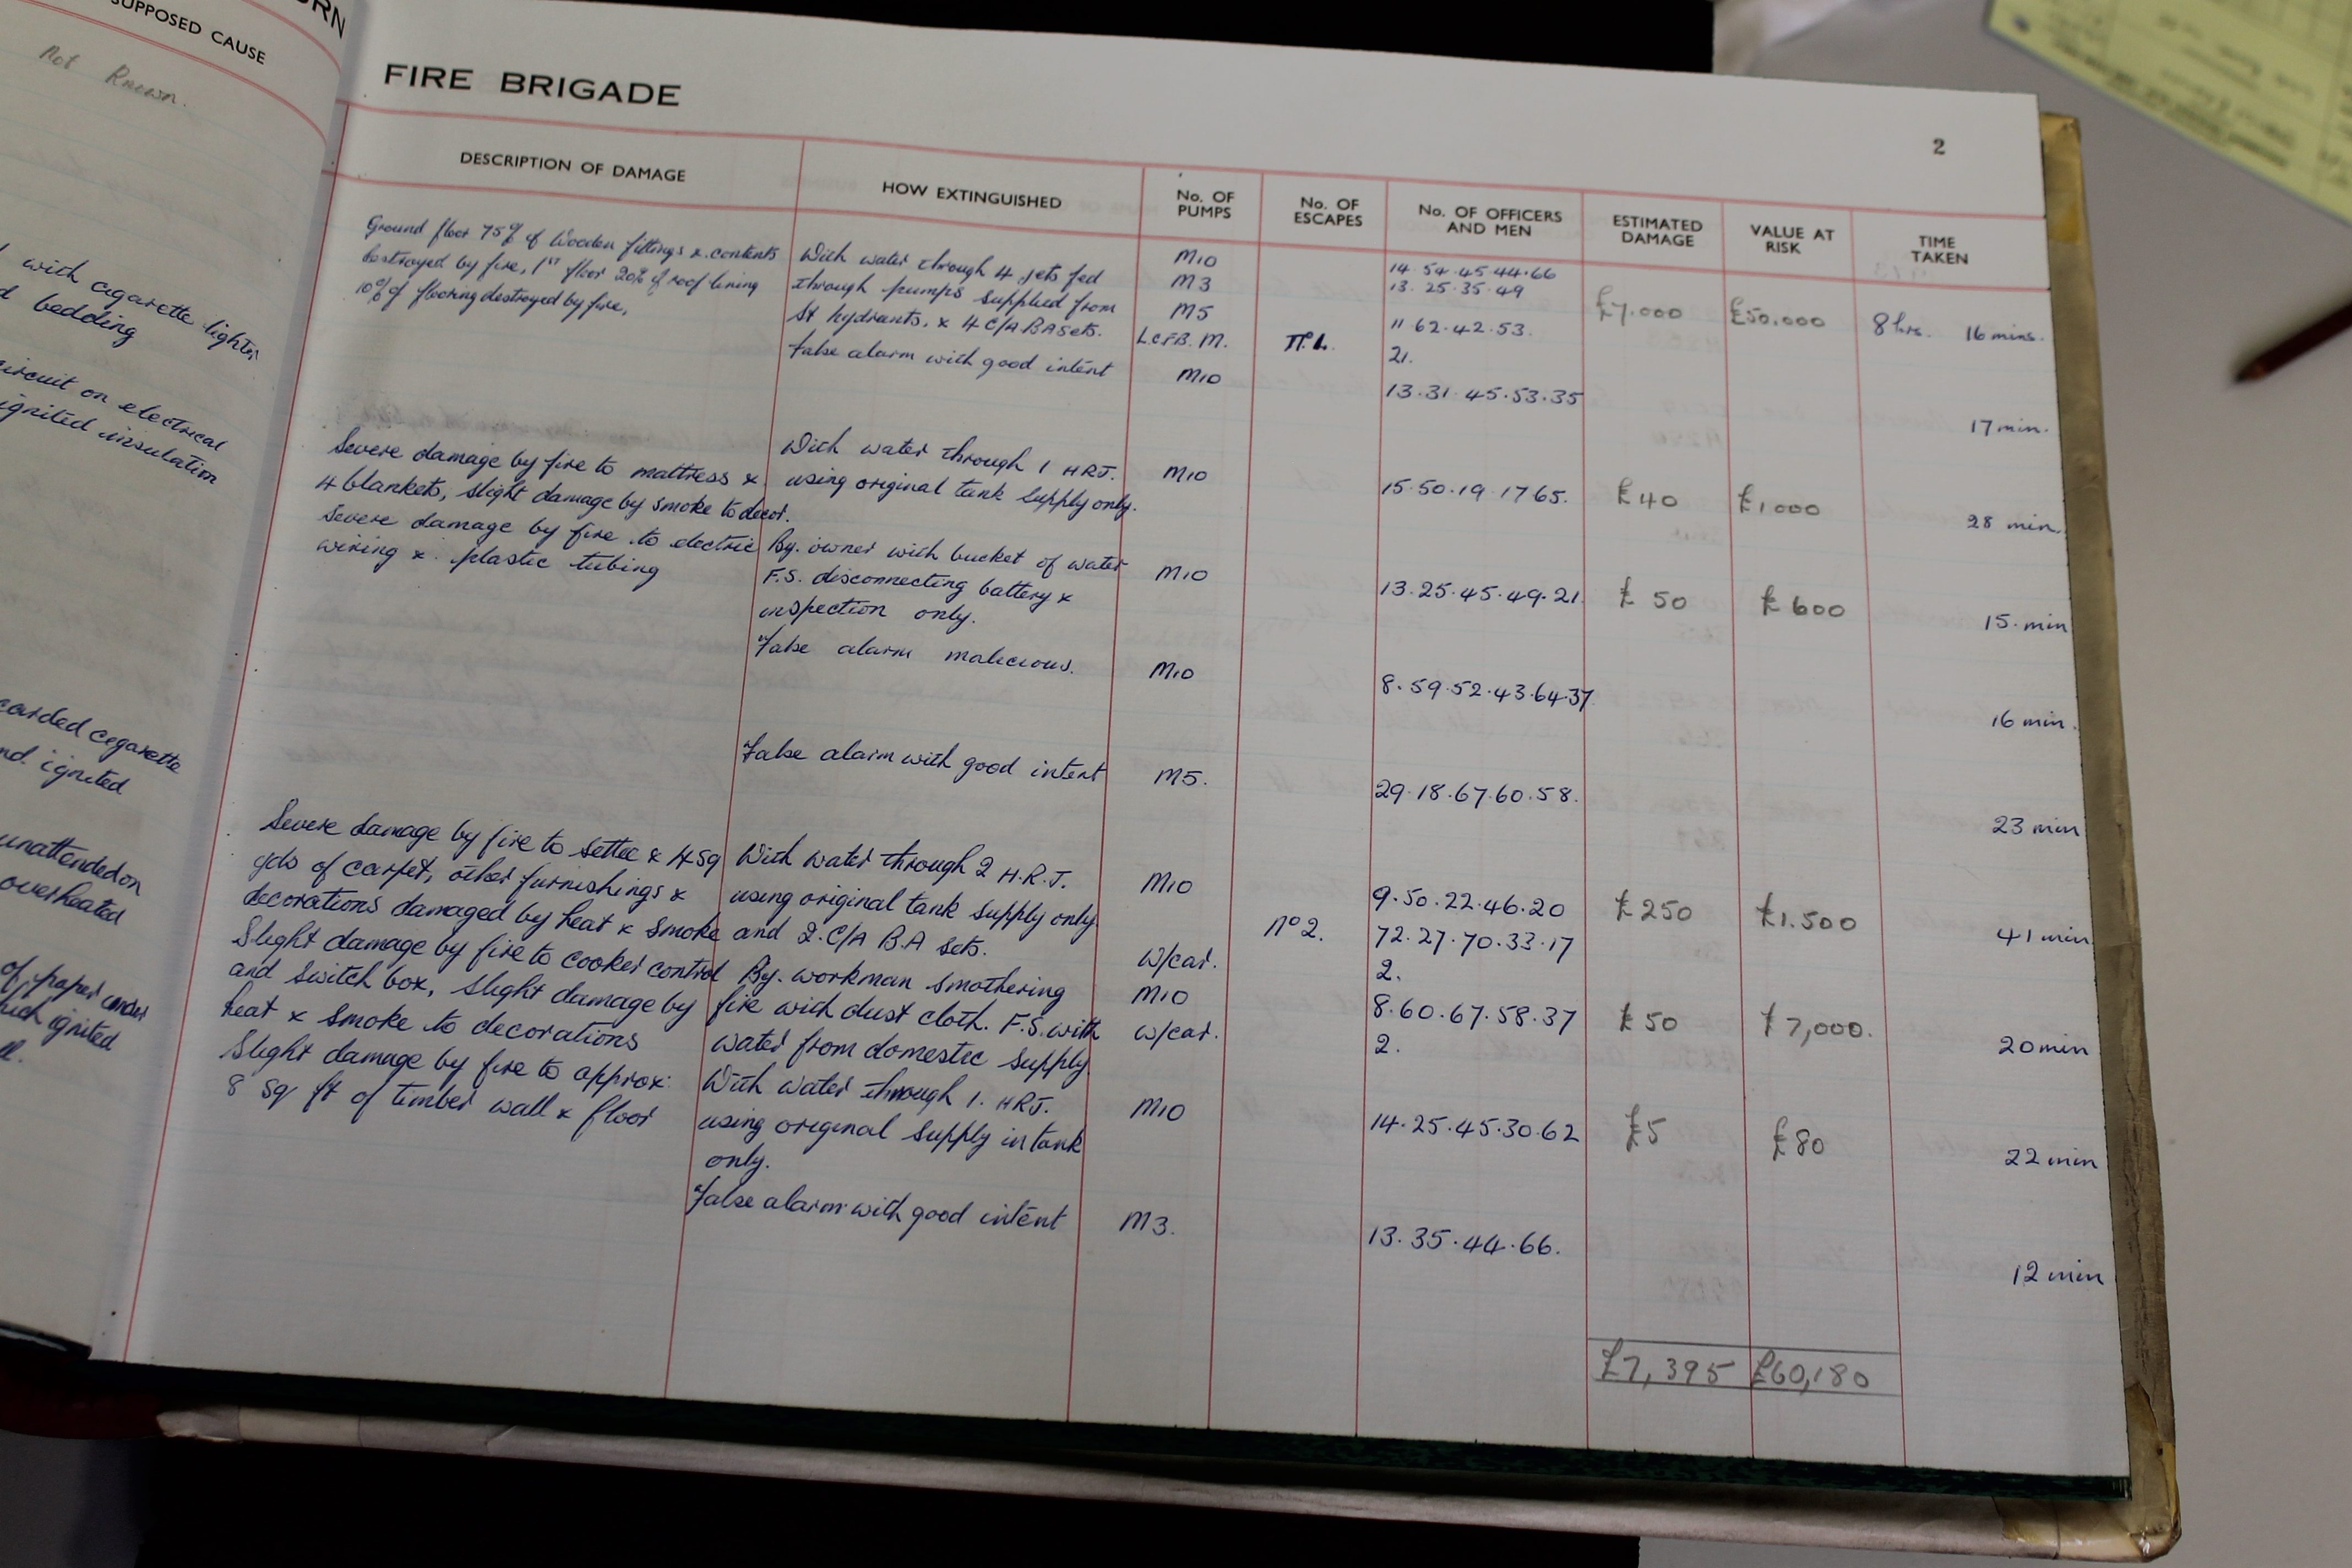 SUPPOSED CAUSE
Not Known.
with cigarette lighter
bedding
circuit on electrical
ignited insulation
carded cegarette
nd ignited
unattended on
overheated
of paper under
uch ignited
FIRE BRIGADE
2
DESCRIPTION OF DAMAGE
HOW EXTINGUISHED
No. OF PUMPS
No. OF ESCAPES
No. OF OFFICERS AND MEN
ESTIMATED DAMAGE
VALUE AT RISK
TIME TAKEN
Ground floor 75% of Wooden fittings x contents
destroyed by fire, 1ST floor 20% of roof lining
10% of flooring destroyed by fire,
With water through 4 jets fed
through pumps supplied from
St hydrants, x 4 C/A BA sets.
M10
M3
M5
L.C.F.B. M.
T.L.
14.54.45.44.66
13.25.35.49
11 62.42.53.
21.
£7.000
£50.000
8 hrs. 16 mins.
False alarm with good intent
M10
13.31.45.53.35
17 min.
Severe damage by fire to mattress x
4 blankets, slight damage by smoke to decor.
With water through 1 HRJ.
using original tank supply only.
M10
15.50.19.17 65.
£40
£1.000
28 min.
Severe damage by fire to electric
wiring x plastic tubing
By. owner with bucket of water
F.S. disconnecting battery x
inspection only.
M10
13.25.45.49.21.
£ 50
£ 600
15. min
False alarm malicious.
M10
8.59.52.43.64.37
16 min.
False alarm with good intent
M5.
29.18.67.60.58.
23 min
Severe damage by fire to settee x 4 sq
yds of carpet, other furnishings x
decorations damaged by heat x smoke
With water through 2 H.R.J.
using original tank supply only.
and 2. C/A B.A sets.
M10
W/car.
No 2.
9.50.22.46.20
72.27.70.33.17
2.
£ 250
£1.500
41 min
Slight damage by fire to cooker control
and switch box, slight damage by
heat x smoke to decorations
By. workman smothering
fire with dust cloth. F.S. with
water from domestic supply.
M10
W/car.
8.60.67.58.37
2.
£50
£7,000.
20 min
Slight damage by fire to approx:
8 sq ft of timber wall x floor
With water through 1. HRJ.
using original supply in tank
only.
M10
14.25.45.30.62
£5
£80
22 min
False alarm with good intent
M3.
13.35.44.66.
12 min
£7,395
£60,180